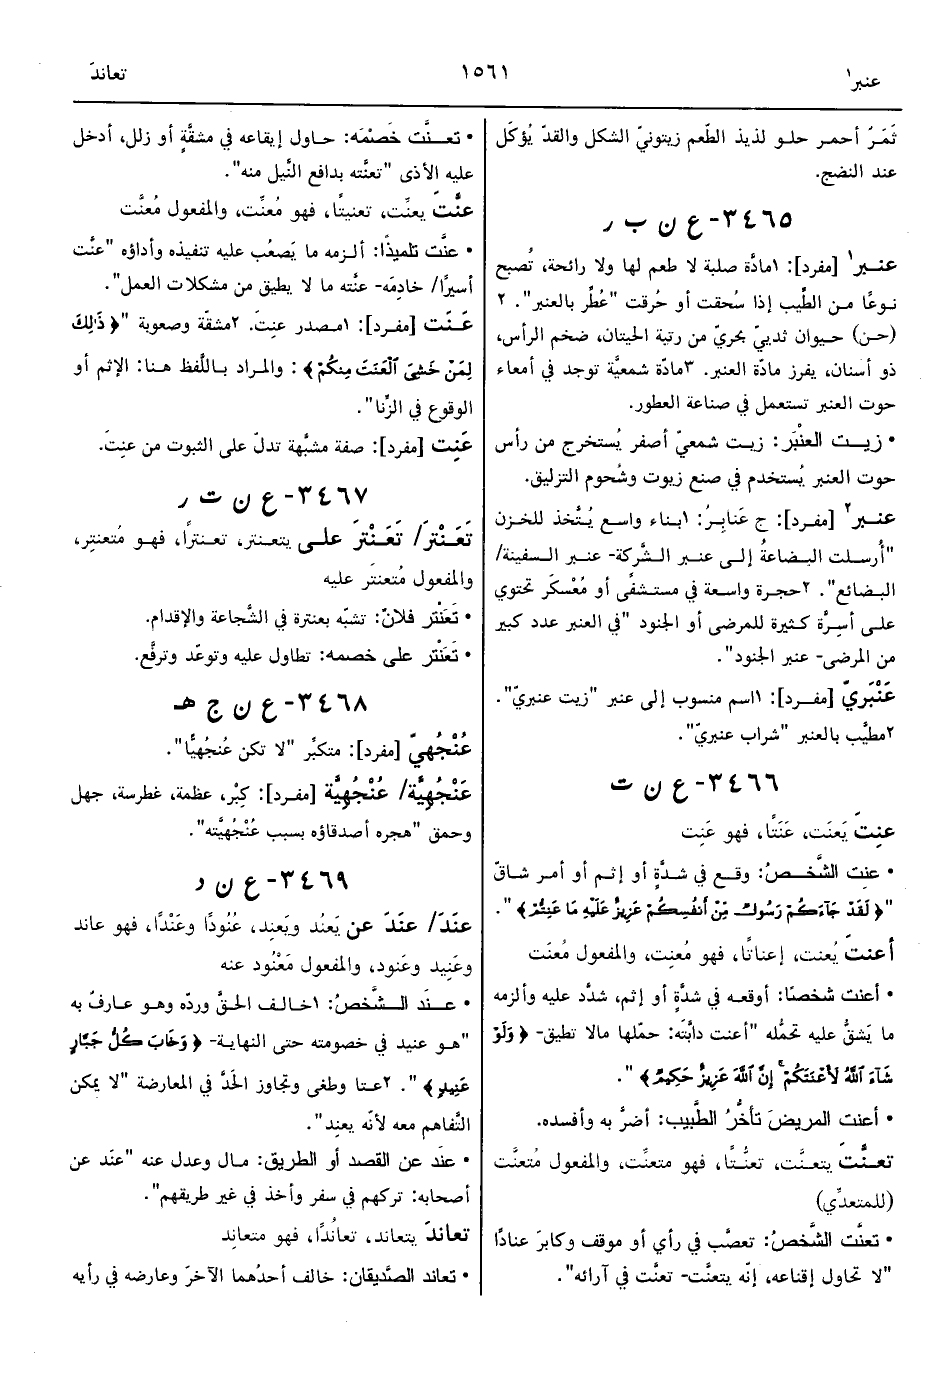 عنبر١
١٥٦١
تعاندَ
ثَمَرٌ أحمر حلو لذيذ الطّعم زيتونيّ الشكل والقدّ يُؤكَل
عند النضج.
٣٤٦٥- ع ن ب ر
عنبر١ [مفرد]: ١مادَّة صلبة لا طعم لها ولا رائحة، تُصبح
نوعًا من الطِّيب إذا سُحقت أو حُرقت "عُطِّر بالعنبر". ٢
(حن) حيوان ثدييّ بحريّ من رتبة الحيتان، ضخم الرأس،
ذو أسنان، يفرز مادّة العنبر. ٣مادّة شمعيَّة توجد في أمعاء
حوت العنبر تستعمل في صناعة العطور.
• زيت العنْبَر: زيت شمعيّ أصفر يُستخرج من رأس
حوت العنبر يُستخدم في صنع زيوت وشُحوم التزليق.
عنبر٢ [مفرد]: ج عَنابِرُ: ١بناء واسع يُتَّخذ للخزن
"أُرسلت البضاعةُ إلى عنبر الشَّركة- عنبر السفينة/
البضائع". ٢حجرة واسعة في مستشفًى أو مُعْسكَر تحتوي
على أسِرَّة كثيرة للمرضى أو الجنود "في العنبر عدد كبير
من المرضى- عنبر الجنود".
عَنْبَريّ [مفرد]: ١اسم منسوب إلى عنبر "زيت عنبريّ".
٢مطيَّب بالعنبر "شراب عنبريّ".
٣٤٦٦- ع ن ت
عنِتَ يَعنَت، عَنَتًا، فهو عَنِت
• عنِت الشَّخصُ: وقع في شدَّةٍ أو إثم أو أمر شاقّ
"﴿لَقَدْ جَآءَكُمْ رَسُولٌ مِّنْ أَنفُسِكُمْ عَزِيزٌ عَلَيْهِ مَا عَنِتُّمْ﴾".
أعنتَ يُعنت، إعناتًا، فهو مُعنِت، والمفعول مُعنَت
• أعنت شخصًا: أوقعه في شدَّةٍ أو إثم، شدَّد عليه وألزمه
ما يَشقُّ عليه تحمُّله "أعنت دابَّتَه: حمّلها مالا تطيق- ﴿وَلَوْ
شَآءَ ٱللَّهُ لَأَعْنَتَكُمْ إِنَّ ٱللَّهَ عَزِيزٌ حَكِيمٌ﴾".
• أعنت المريضَ تأخُّرُ الطَّبيب: أضرَّ به وأفسده.
تعنَّتَ يتعنَّت، تعنُّتًا، فهو متعنِّت، والمفعول مُتعنَّت
(للمتعدِّي)
• تعنَّت الشَّخصُ: تعصَّب في رأي أو موقف وكابرَ عنادًا
"لا تحاول إقناعه، إنّه يتعنَّت- تعنَّت في آرائه".
• تعنَّت خَصْمَه: حاول إيقاعه في مشقَّةٍ أو زلل، أدخل
عليه الأذى "تعنَّته بدافع النَّيل منه".
عنَّتَ يعنِّت، تعنيتًا، فهو مُعنِّت، والمفعول مُعنَّت
• عنَّت تلميذًا: ألزمه ما يَصعُب عليه تنفيذه وأداؤه "عنَّت
أسيرًا/ خادِمَه- عنَّته ما لا يطيق من مشكلات العمل".
عَنَت [مفرد]: ١مصدر عنِتَ. ٢مشقّة وصعوبة "﴿ذَٰلِكَ
لِمَنْ خَشِيَ ٱلْعَنَتَ مِنكُمْ﴾: والمراد باللَّفظ هنا: الإثم أو
الوقوع في الزِّنا".
عَنِت [مفرد]: صفة مشبَّهة تدلّ على الثبوت من عنِتَ.
٣٤٦٧- ع ن ت ر
تَعَنْترَ/ تَعَنْترَ على يتعنتر، تعنترًا، فهو مُتعنتِر،
والمفعول مُتعنتَر عليه
• تَعَنْتر فلانٌ: تشبّه بعنترة في الشَّجاعة والإقدام.
• تَعَنْتر على خصمه: تطاول عليه وتوعّد وترفَّع.
٣٤٦٨- ع ن ج هـ
عُنْجُهيّ [مفرد]: متكبِّر "لا تكن عُنجُهيًّا".
عَنْجُهِيَّة/ عُنْجُهِيَّة [مفرد]: كِبْر، عظمة، غطرسة، جهل
وحمق "هجره أصدقاؤه بسبب عُنْجُهيَّته".
٣٤٦٩- ع ن د
عنَدَ/ عنَدَ عن يَعنُد ويَعنِد، عُنُودًا وعَنْدًا، فهو عاند
وعَنِيد وعَنود، والمفعول مَعْنُود عنه
• عنَد الشَّخصُ: ١خالف الحقَّ وردّه وهو عارفٌ به
"هو عنيد في خصومته حتى النهاية- ﴿وَخَابَ كُلُّ جَبَّارٍ
عَنِيدٍ﴾". ٢عتا وطغى وتجاوز الحَدَّ في المعارضة "لا يمكن
التَّفاهم معه لأنّه يعنِد".
• عنَد عن القصد أو الطريق: مال وعدل عنه "عنَد عن
أصحابه: تركهم في سفر وأخذ في غير طريقهم".
تعاندَ يتعاند، تعانُدًا، فهو متعانِد
• تعاند الصَّديقان: خالف أحدُهما الآخرَ وعارضه في رأيه